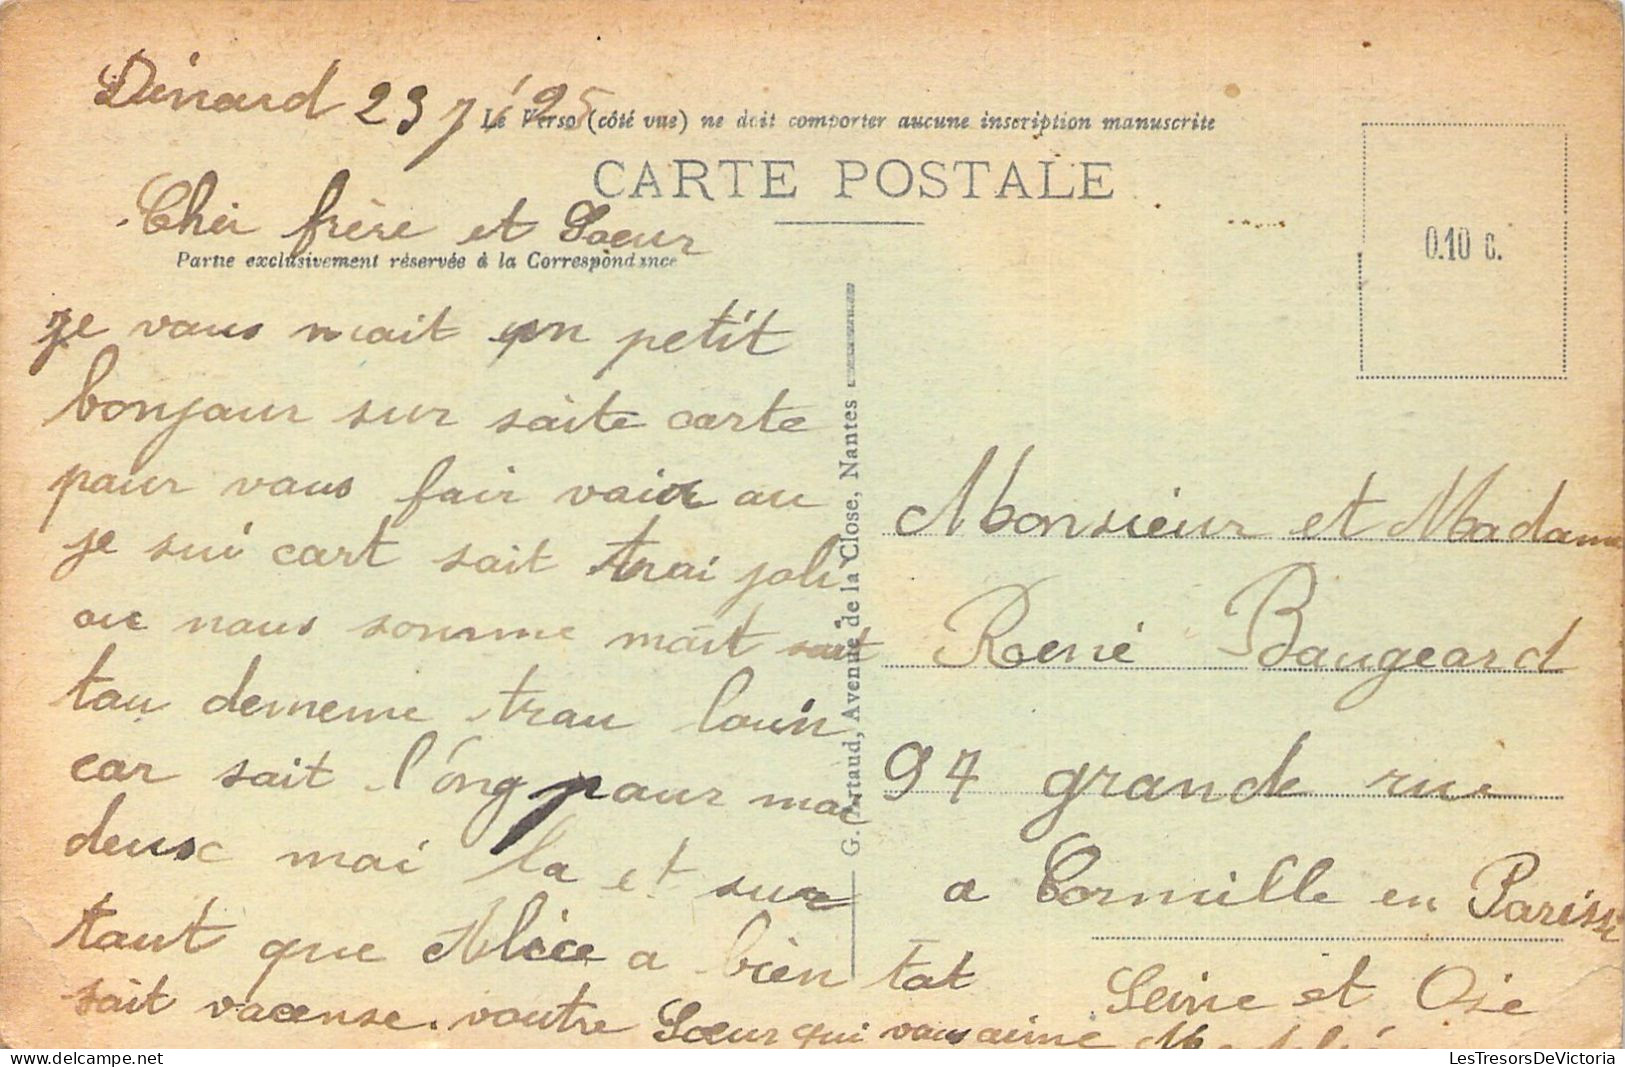 Dinard 23 7 25
Le Verso (côté vue) ne doit comporter aucune inscription manuscrite
CARTE POSTALE
Cher frère et Soeur
Partie exclusivement réservée à la Correspondance
0.10 c.
je vous mait un petit
bonjour sur saite carte
pour vous fair voir ou
je sui cart sait trai joli
ou nous somme mait sait
tou dememe trou louin
car sait l'ong pour moi
deusc moi la et sur
tout que Alice a bien tat
sait vacense. voutre Soeur qui vous aime
G. Artaud, Avenue de la Close, Nantes
Monsieur et Madame
René Baugeard
97 grande rue
a Cormille en Parisis
Seine et Oise
LesTresorsDeVictoria